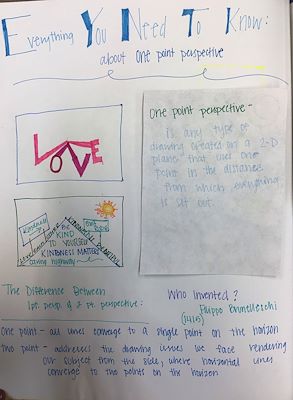 Everything You Need To Know:
about one point perspective
LOVE
One point perspective-
is any type of
drawing created on a 2-D
plane that uses one
point in the distance
from which everything
is set out.
Kindness
BE
KIND
TO YOURSELF
KINDNESS MATTERS
caring highway
The Difference Between
1pt. persp. & 2 pt. perspective:
Who Invented?
Filippo Brunelleschi
(1415)
One point- all lines converge to a single point on the horizon
two point- addresses the drawing issues we face rendering
our subject from the side, where horizontal lines
converge to two points on the horizon